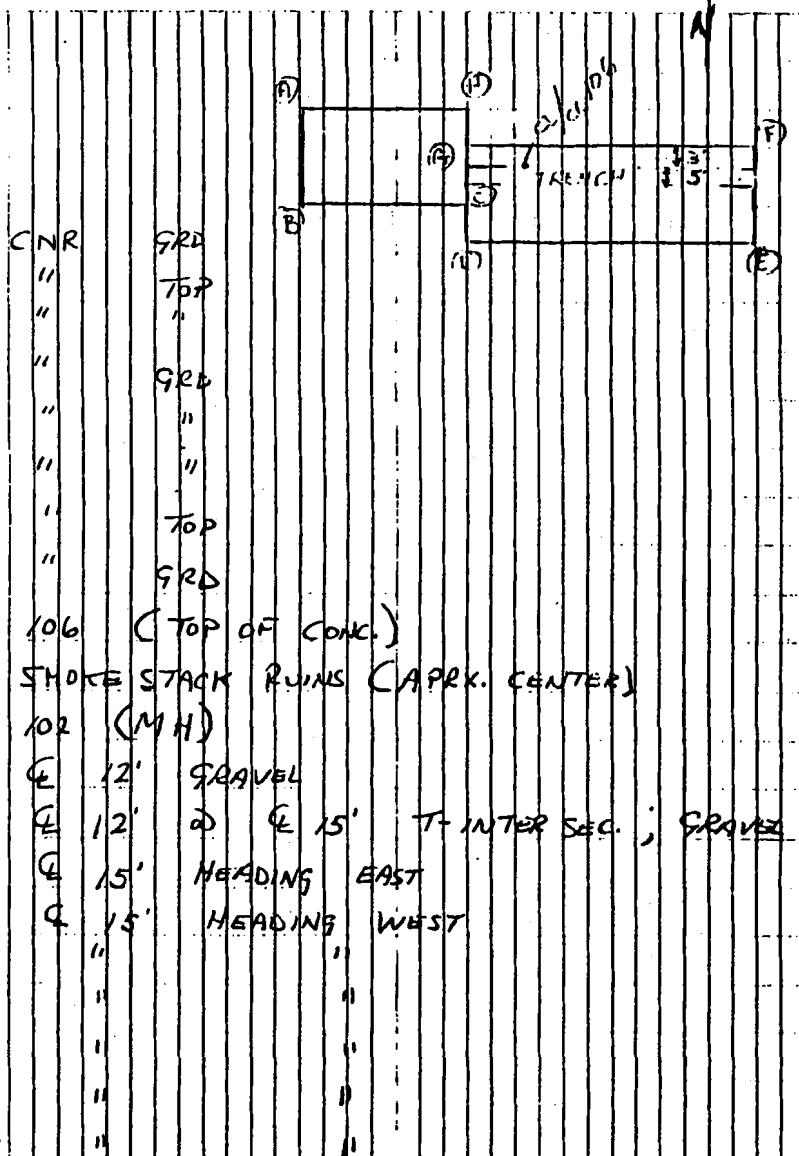 N
(A) (H)
(G) TRENCH 3' (F)
(C) 5'
B
(E)
CNR GRD
" TOP
" "
" GRD
" "
" "
" TOP
" GRD
106 (TOP OF CONC.)
SMOKE STACK RUINS (APRX. CENTER)
102 (MH)
℄ 12' GRAVEL
℄ 12' @ ℄ 15' T-INTERSEC. ; GRAVEL
℄ 15' HEADING EAST
℄ 15' HEADING WEST
" "
" "
" "
" "
" "